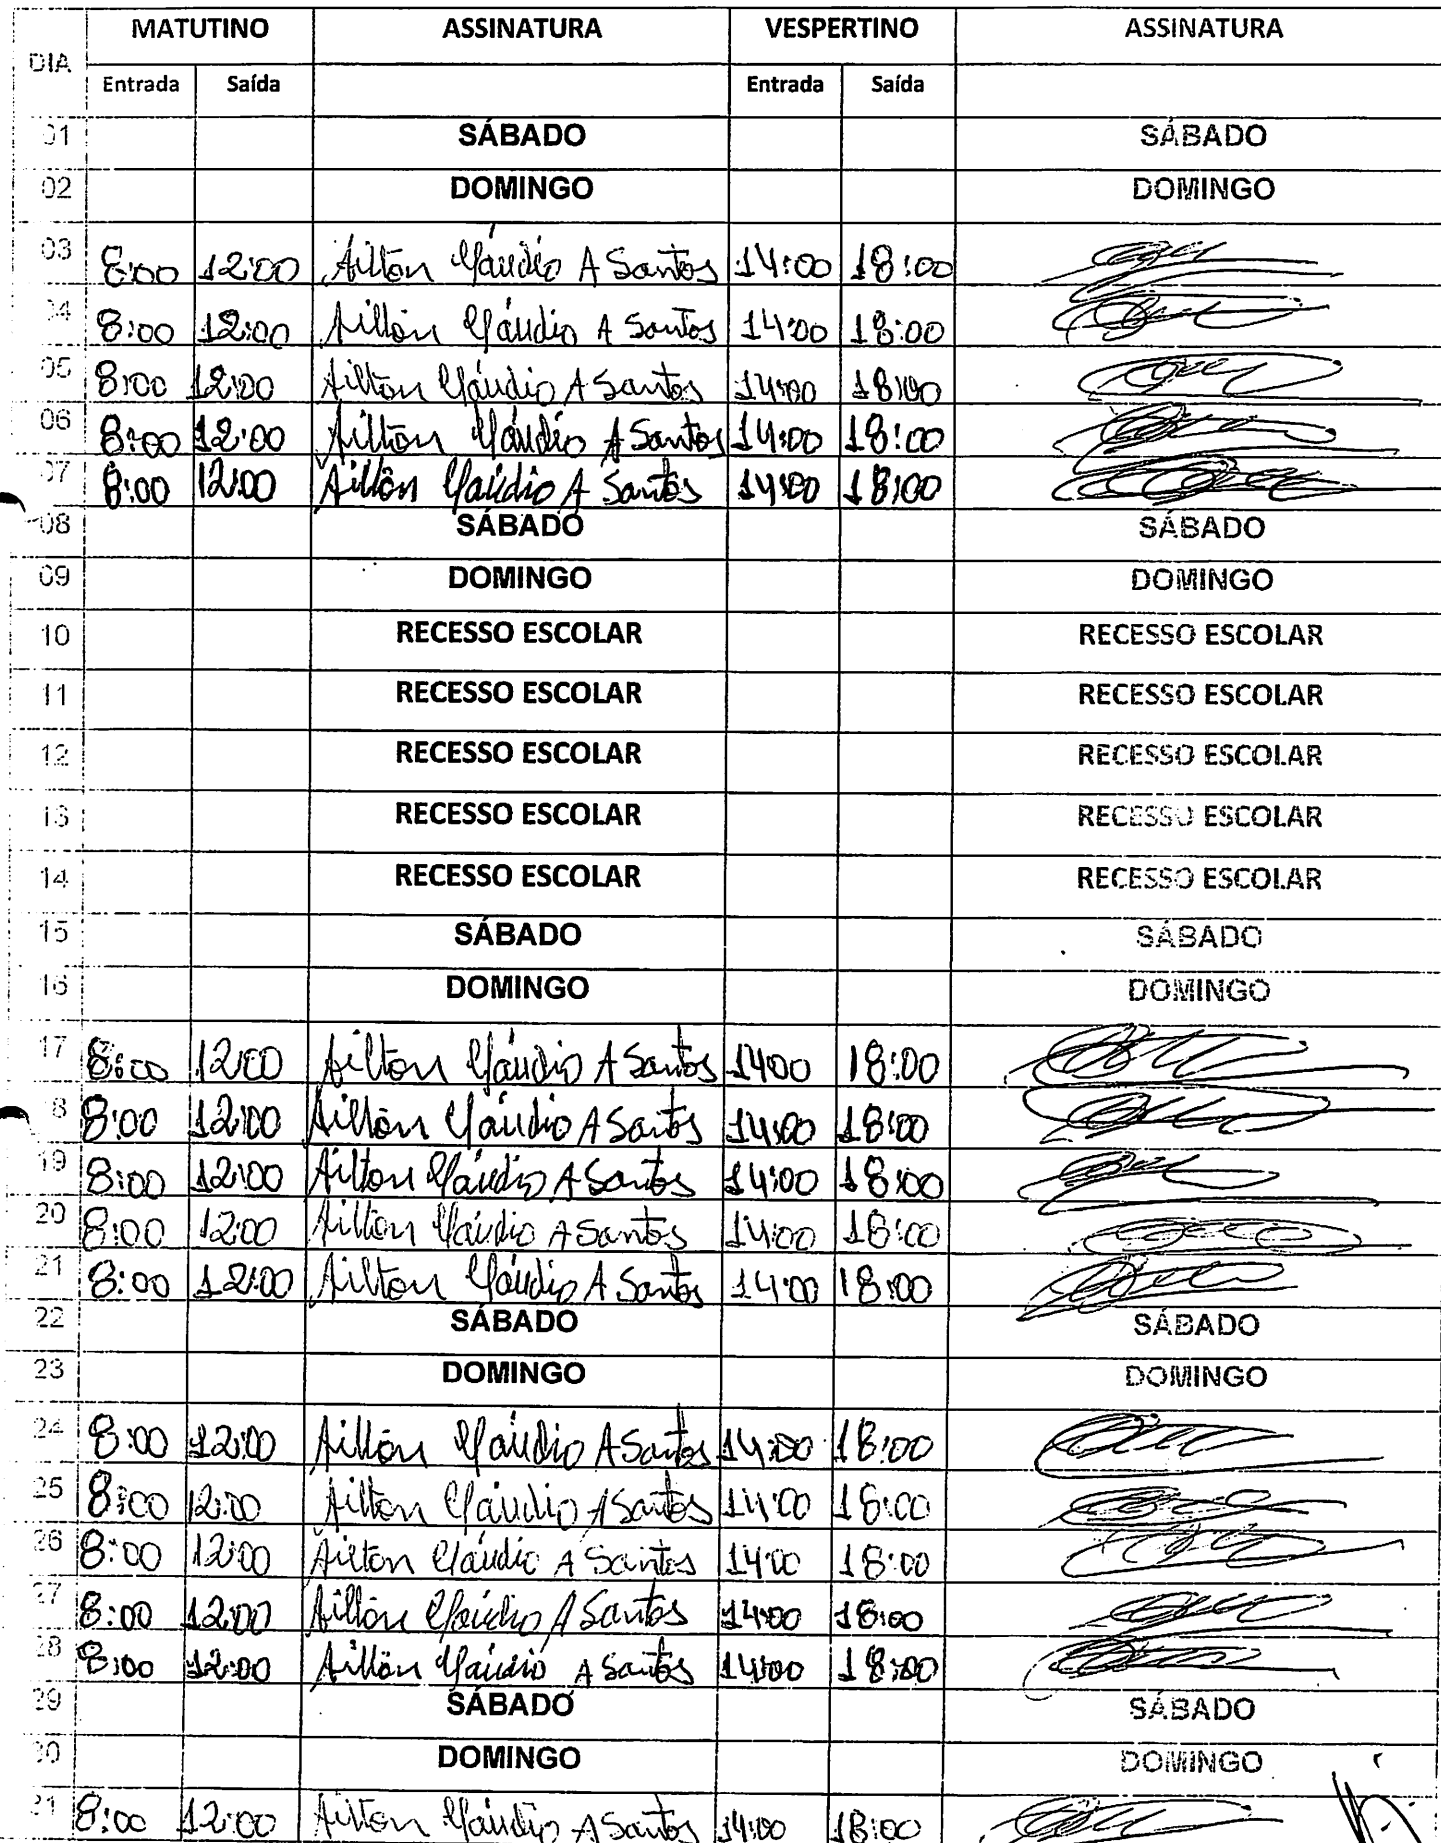 DIA MATUTINO ASSINATURA VESPERTINO ASSINATURA
Entrada Saída Entrada Saída
01 SÁBADO SÁBADO
02 DOMINGO DOMINGO
03 8:00 12:00 Ailton Cláudio A Santos 14:00 18:00
04 8:00 12:00 Ailton Cláudio A Santos 14:00 18:00
05 8:00 12:00 Ailton Cláudio A Santos 14:00 18:00
06 8:00 12:00 Ailton Cláudio A Santos 14:00 18:00
07 8:00 12:00 Ailton Cláudio A Santos 14:00 18:00
08 SÁBADO SÁBADO
09 DOMINGO DOMINGO
10 RECESSO ESCOLAR RECESSO ESCOLAR
11 RECESSO ESCOLAR RECESSO ESCOLAR
12 RECESSO ESCOLAR RECESSO ESCOLAR
13 RECESSO ESCOLAR RECESSO ESCOLAR
14 RECESSO ESCOLAR RECESSO ESCOLAR
15 SÁBADO SÁBADO
16 DOMINGO DOMINGO
17 8:00 12:00 Ailton Cláudio A Santos 14:00 18:00
8 8:00 12:00 Ailton Cláudio A Santos 14:00 18:00
19 8:00 12:00 Ailton Cláudio A Santos 14:00 18:00
20 8:00 12:00 Ailton Cláudio A Santos 14:00 18:00
21 8:00 12:00 Ailton Cláudio A Santos 14:00 18:00
22 SÁBADO SÁBADO
23 DOMINGO DOMINGO
24 8:00 12:00 Ailton Cláudio A Santos 14:00 18:00
25 8:00 12:00 Ailton Cláudio A Santos 14:00 18:00
26 8:00 12:00 Ailton Cláudio A Santos 14:00 18:00
27 8:00 12:00 Ailton Cláudio A Santos 14:00 18:00
28 8:00 12:00 Ailton Cláudio A Santos 14:00 18:00
29 SÁBADO SÁBADO
30 DOMINGO DOMINGO
31 8:00 12:00 Ailton Cláudio A Santos 14:00 18:00